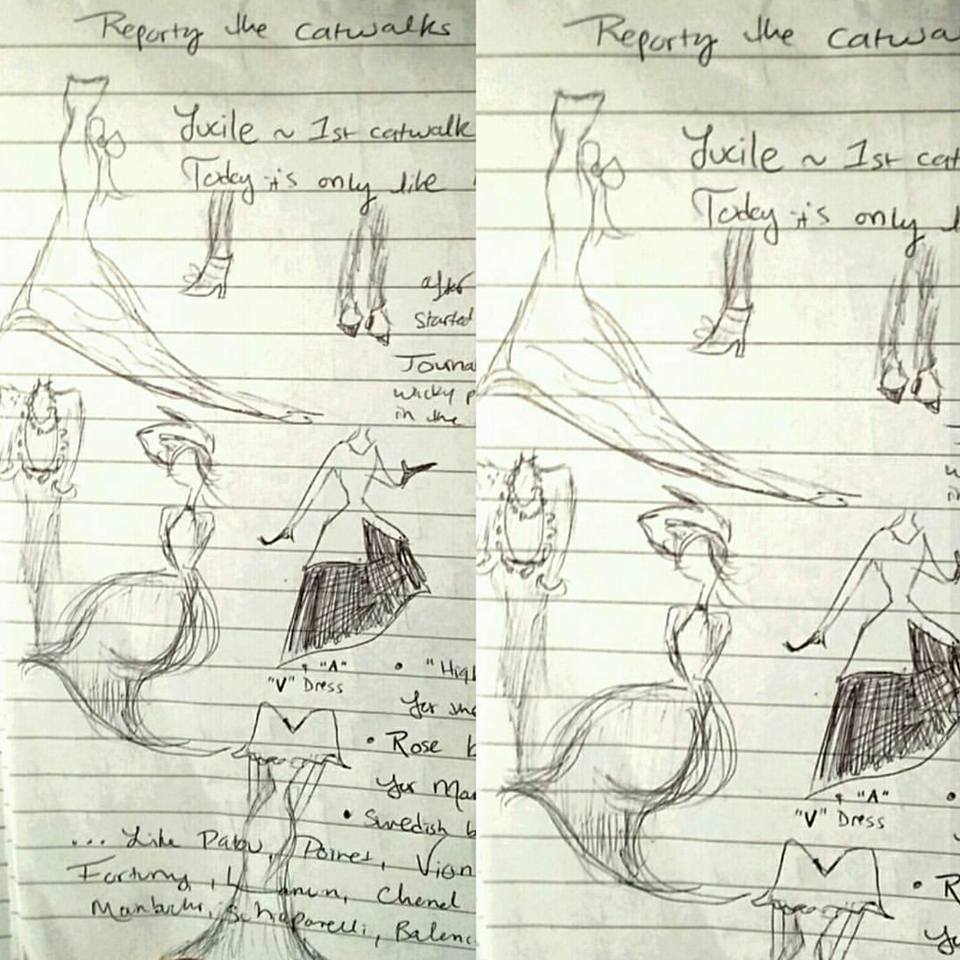 Reporty the catwalks
Lucile ~ 1st catwalk
Today it's only like
after
started
Journa
wicky p
in the
"A"
"V" Dress
• "High
for
• Rose b
for Ma
• Swedish b
... Like Patou, Poiret, Vion
Fortuny, Lanvin, Chanel
Schiaparelli, Balenc
Reporty the catwa
Lucile ~ 1st cat
Today it's only l
in
"A"
"V" Dress
• R